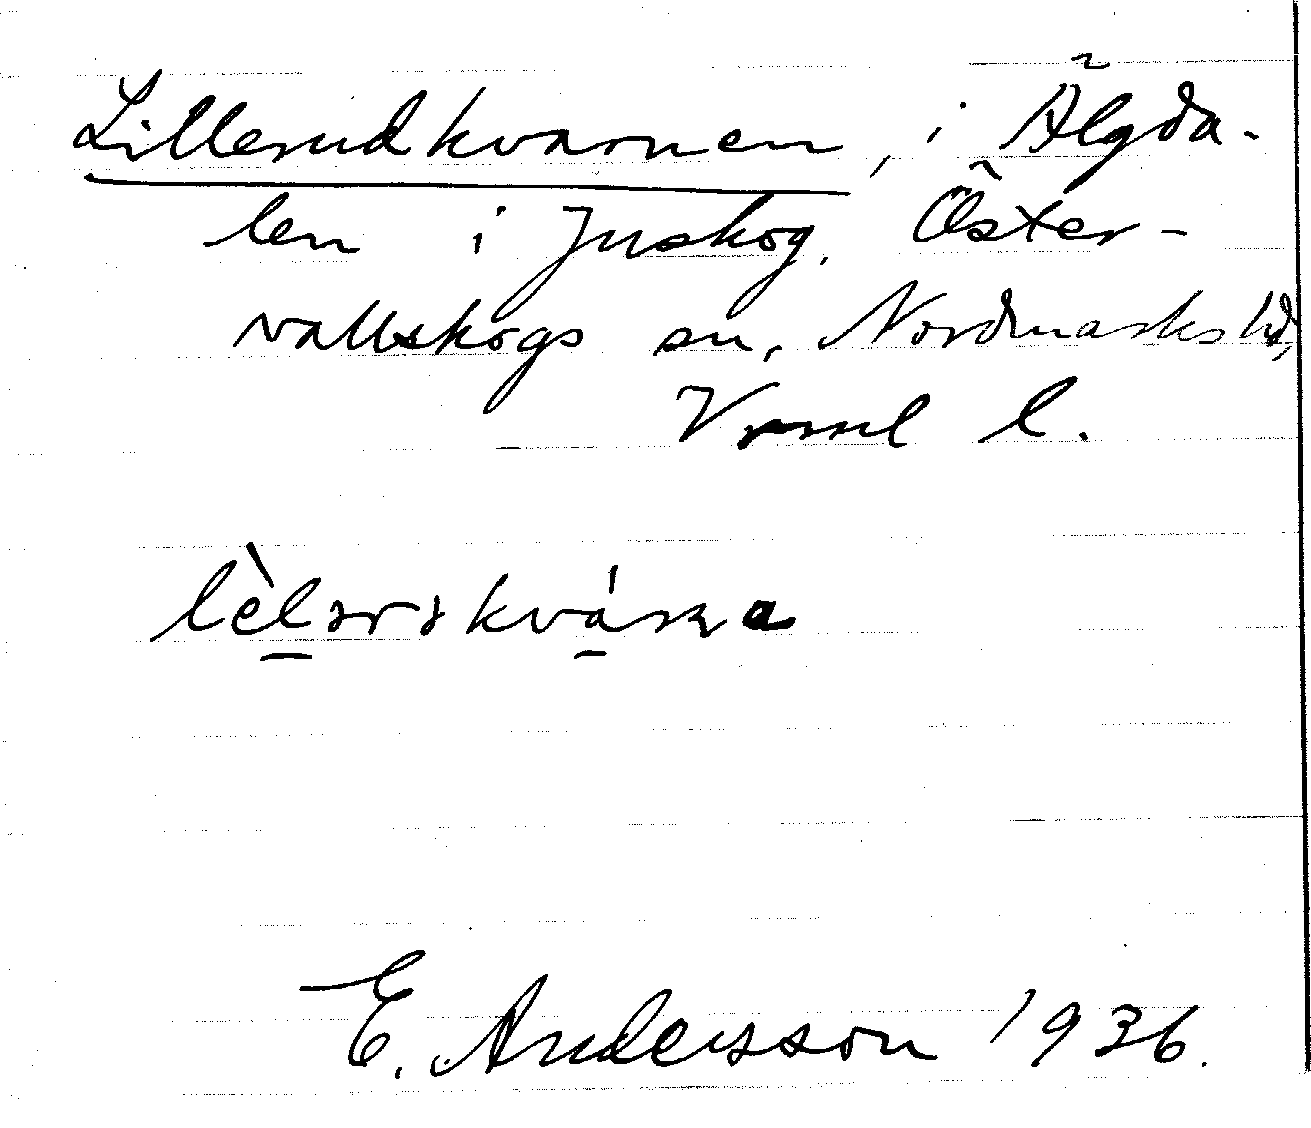 Lillerudkvarnen, i Älgda-
len i Juskog, Öster-
vallskogs sn, Nordmarks hd,
Vrml l.
E. Andersson 1936.